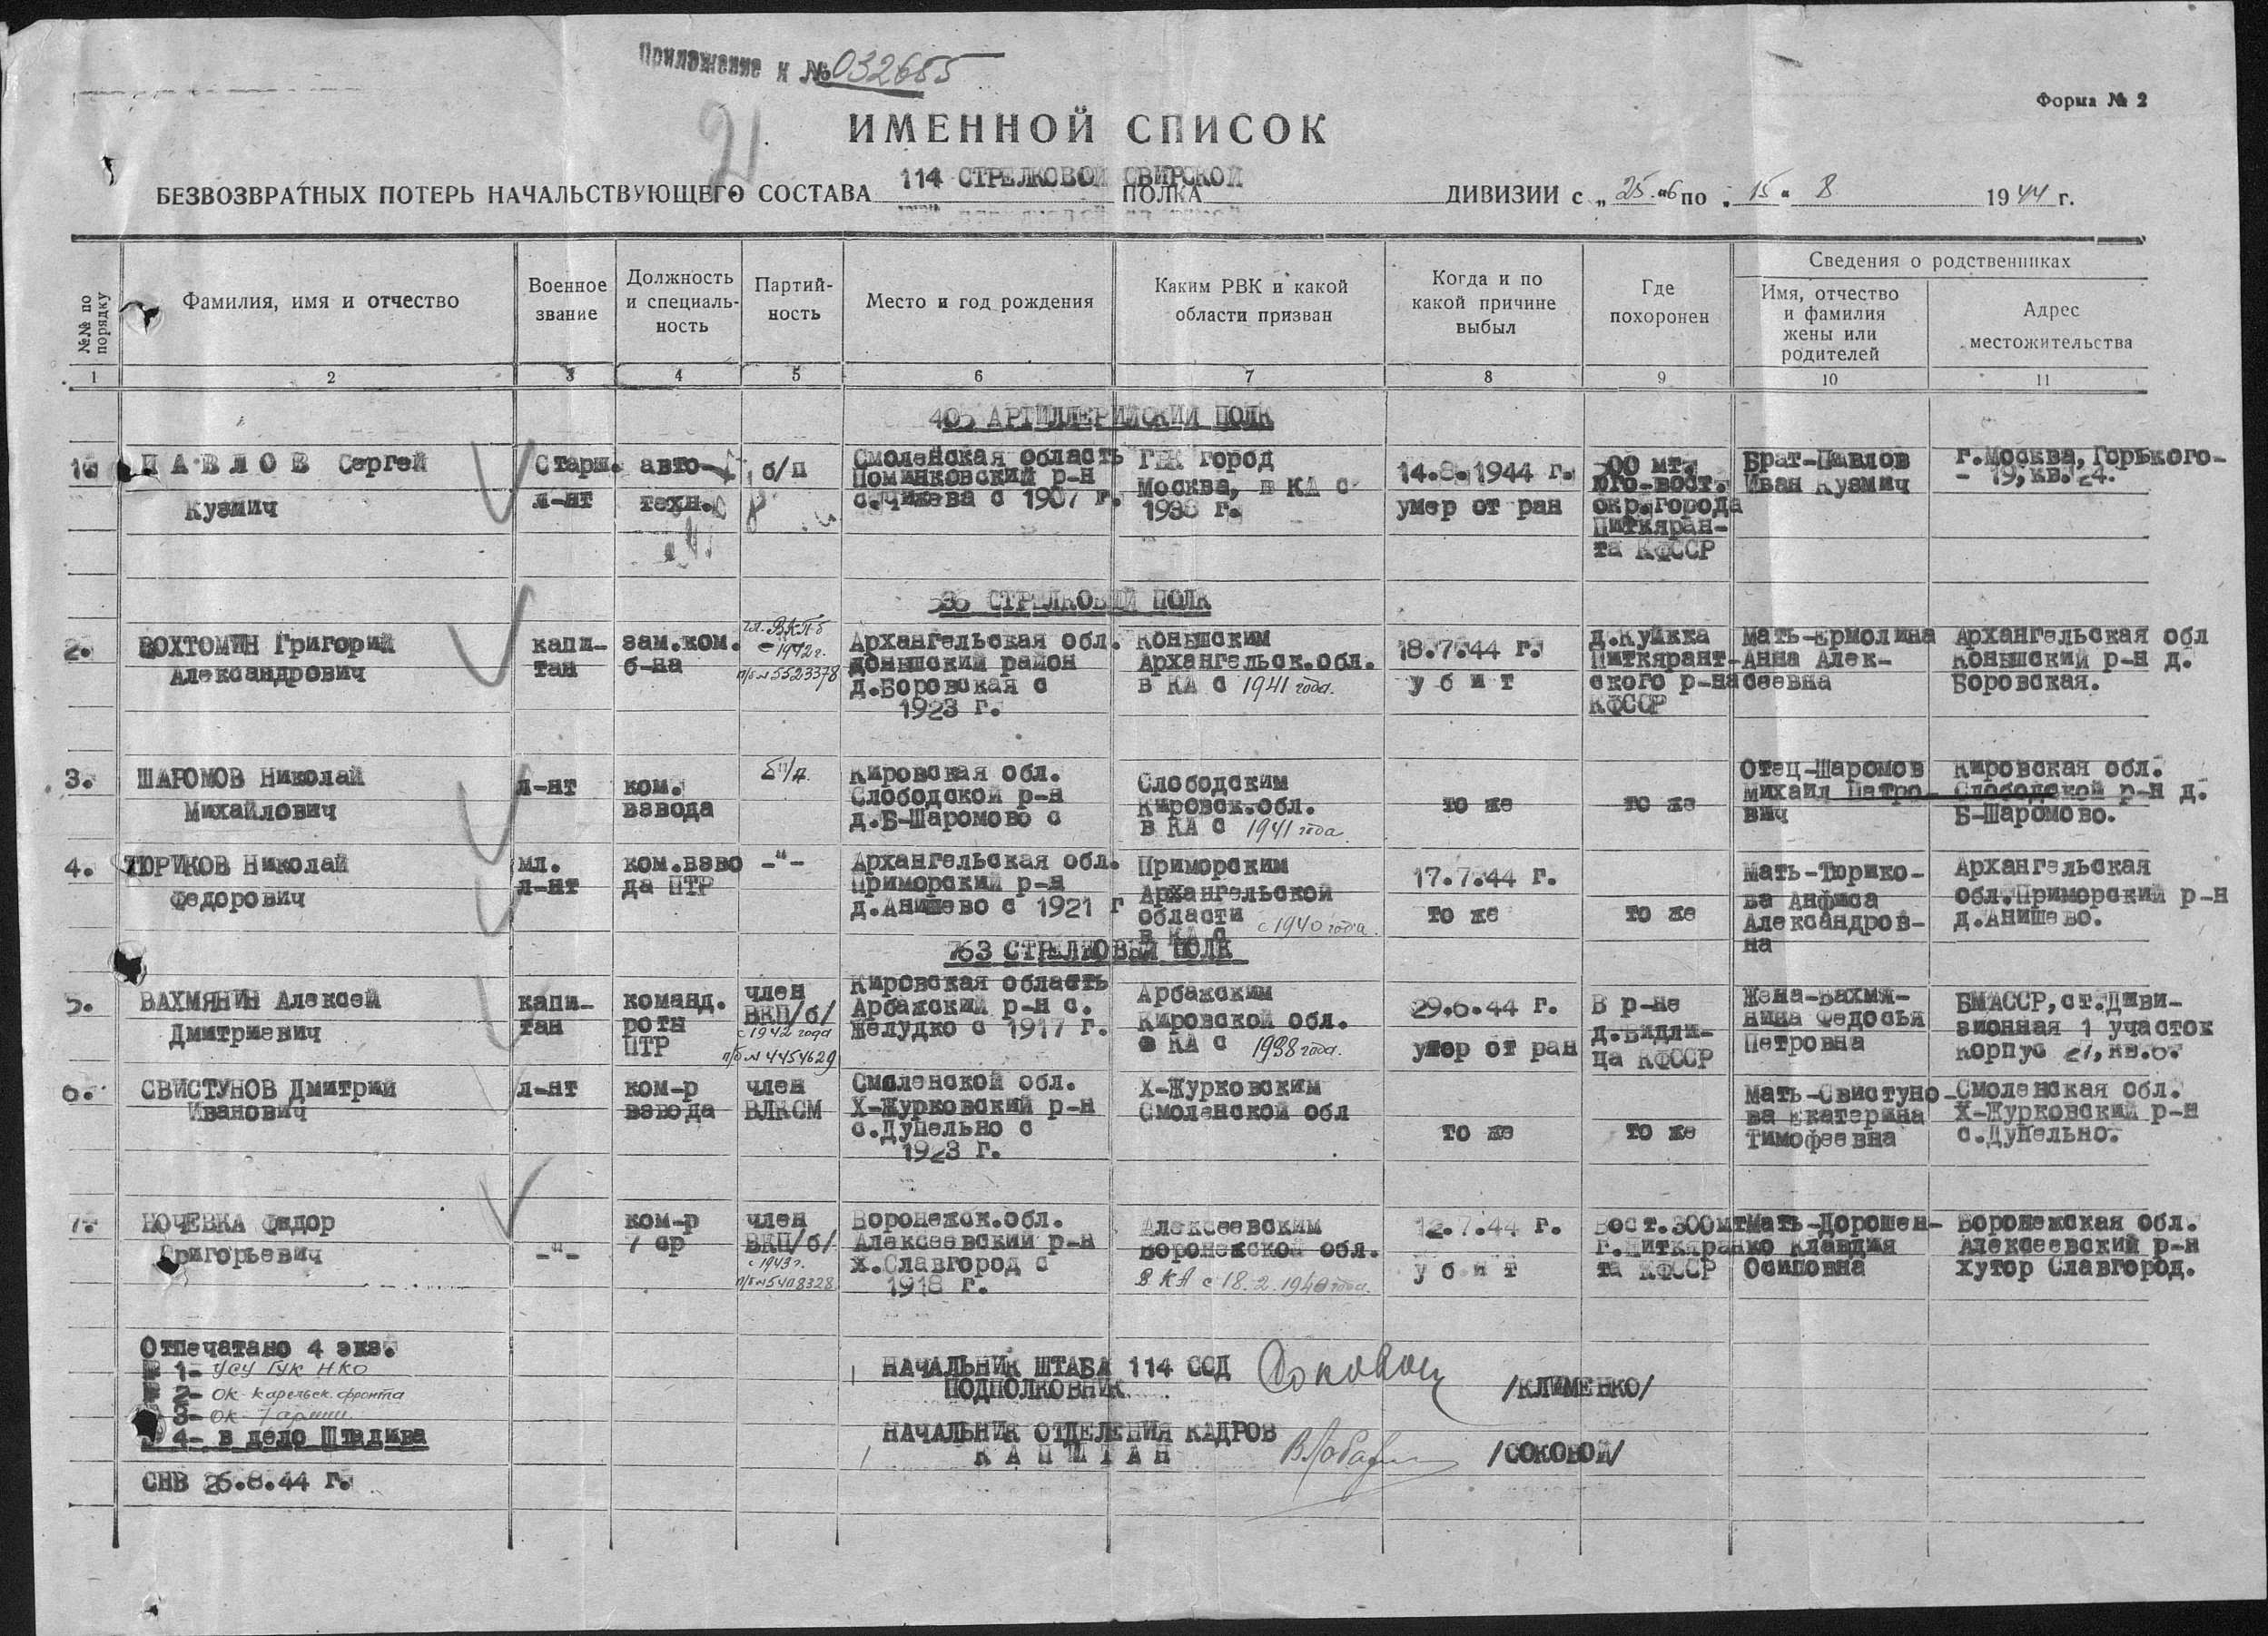 Приложение к №032655
21
Форма № 2
ИМЕННОЙ СПИСОК
114 СТРЕЛКОВОЙ СВИРСКОЙ
БЕЗВОЗВРАТНЫХ ПОТЕРЬ НАЧАЛЬСТВУЮЩЕГО СОСТАВА ПОЛКА ДИВИЗИИ с „25."6 по „15" 8 1944 г.
№№ по порядку
Фамилия, имя и отчество
Военное звание
Должность и специаль-ность
Партий-ность
Место и год рождения
Каким РВК и какой области призван
Когда и по какой причине выбыл
Где похоронен
Сведения о родственниках
Имя, отчество и фамилия жены или родителей
Адрес местожительства
1 2 3 4 5 6 7 8 9 10 11
405 АРТИЛЛЕРИЙСКИЙ ПОЛК
1.
ПАВЛОВ Сергей
Кузмич
Старш.
л-нт
авто-
техн.
б/п
Смоленская область
Поминковский р-н
с.Чижева с 1907 г.
ГВК город
Москва, в КА с
1938 г.
14.8.1944 г.
умер от ран
500 мт.
юго-вост.
окр.города
Питкяран-
та КФССР
Брат-Павлов
Иван Кузмич
г.Москва, Горького-
- 19, кв. 24.
536 СТРЕЛКОВЫЙ ПОЛК
2.
ВОХТОМИН Григорий
Александрович
капи-
тан
зам.ком.
б-на
чл. ВКПб
с 1942 г.
п/б № 5523378
Архангельская обл.
Коньшский район
д.Боровская с
1923 г.
Коньшским
Архангельск.обл.
в КА с 1941 года.
18.7.44 г.
у б и т
д.Куйкка
Питкярант-
ского р-на
КФССР
Мать-Ермолина
Анна Алек-
сеевна
Архангельская обл
Коньшский р-н д.
Боровская.
3.
ШАРОМОВ Николай
Михайлович
л-нт
ком.
взвода
б/п.
Кировская обл.
Слободской р-н
д.Б-Шаромово с
Слободским
Кировск.обл.
в КА с 1941 года
то же
то же
Отец-Шаромов
Михаил Петро-
вич
Кировская обл.
Слободской р-н д.
Б-Шаромово.
4.
ТЮРИКОВ Николай
Федорович
мл.
л-нт
ком.взво
да ПТР
-"-
Архангельская обл.
Приморский р-н
д.Анишево с 1921 г
Приморским
Архангельской
области
в КА с с 1940 года.
17.7.44 г.
то же
то же
Мать-Тюрико-
ва Анфиса
Александров-
на
Архангельская
обл.Приморский р-н
д.Анишево.
763 СТРЕЛКОВЫЙ ПОЛК
5.
ВАХМЯНИН Алексей
Дмитриевич
капи-
тан
команд.
роты
ПТР
член
ВКП/б/
с 1942 года
п/б № 4454629
Кировская область
Арбажский р-н с.
Желудко с 1917 г.
Арбажским
Кировской обл.
в КА с 1938 года.
29.6.44 г.
умер от ран
В р-не
д.Видли-
ца КФССР
Жена-Вахмя-
нина Федосья
Петровна
БМАССР, ст.Диви-
зионная 1 участок
корпус 27, кв.6.
6.
СВИСТУНОВ Дмитрий
Иванович
л-нт
ком-р
взвода
член
ВЛКСМ
Смоленской обл.
Х-Журковский р-н
с.Дупельно с
1923 г.
Х-Журковским
Смоленской обл
то же
то же
Мать-Свистуно-
ва Екатерина
Тимофеевна
Смоленская обл.
Х-Журковский р-н
с.Дупельно.
7.
НОЧЕВКА Федор
Григорьевич
-"-
ком-р
7 ср
член
ВКП/б/
с 1943 г.
п/б № 5408328
Воронежск.обл.
Алексеевский р-н
х.Славгород с
1918 г.
Алексеевским
Воронежской обл.
в КА с 18.2.1940 года.
12.7.44 г.
у б и т
Вост.300мт
г.Питкяран
та КФССР
Мать-Дорошен-
ко Клавдия
Осиповна
Воронежская обл.
Алексеевский р-н
хутор Славгород.
Отпечатано 4 экз.
№ 1- УСУ ГУК НКО
№ 2- ОК Карельск. фронта
3- ОК 7 армии
4- в дело Штадива
СНВ 26.8.44 г.
НАЧАЛЬНИК ШТАБА 114 ССД
ПОДПОЛКОВНИК
/КЛИМЕНКО/
НАЧАЛЬНИК ОТДЕЛЕНИЯ КАДРОВ
КАПИТАН
/СОКОВОЙ/